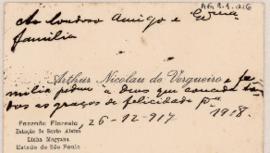 AG 1.1.216
Ao bondoso Amigo e Exma
familia
Arthur Nicolau de Vergueiro e fa
milia pedem a Deus que conceda to
dos as graças de felicidade pa
1918.
26-12-917
Fazenda Floresta
Estação de Santo Aleixo
Linha Mogyana
Estado de São Paulo